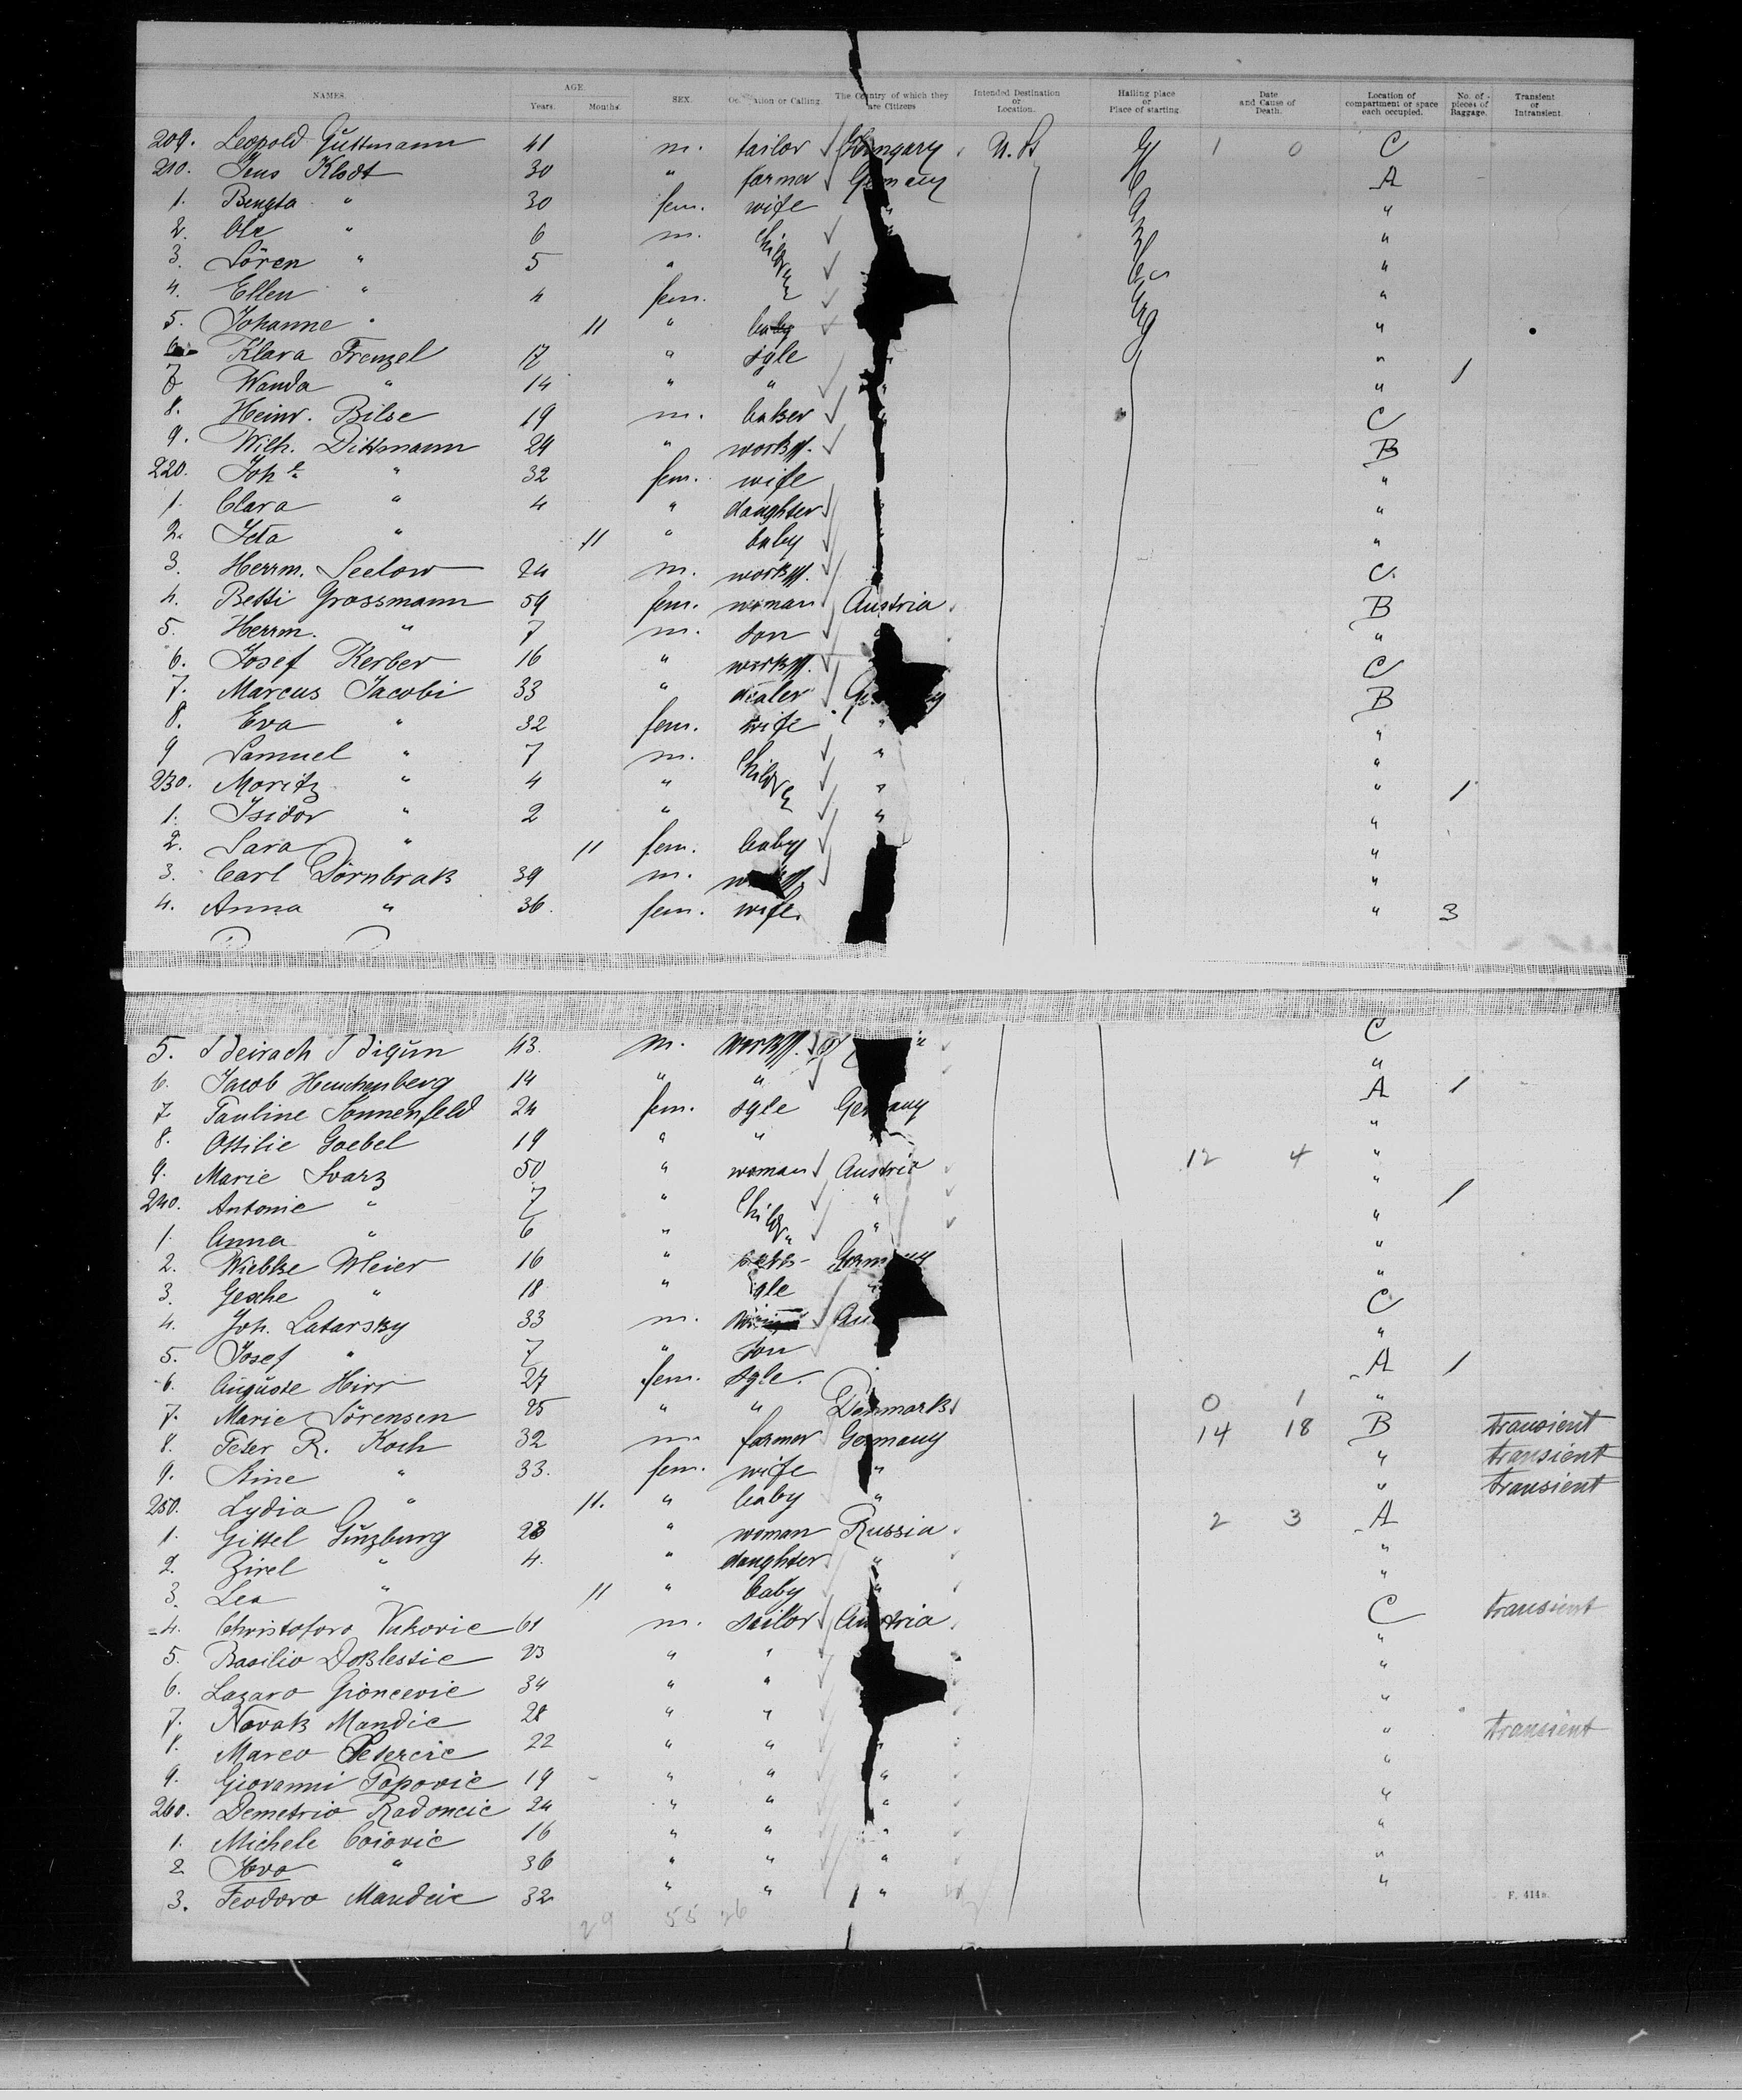 NAMES. AGE. Years. Months. SEX. Occupation or Calling. The Country of which they are Citizens Intended Destination or Location. Hailing place or Place of starting. Date and Cause of Death. Location of compartment or space each occupied. No. of pieces of Baggage. Transient or Intransient.
209. Leopold Guttmann 41 m. tailor Hungary U. St 1 0 C
210. Jens Klodt 30 " farmer Germany A
1. Bengta " 30 fem. wife " "
2. Ole " 6 m. children "
3. Sören " 5 " "
4. Ellen " 4 fem. "
5. Johanne " 11 " baby "
6. Klara Frenzel 17 " sgle "
7. Wanda " 14 " " " 1
8. Heinr. Bilse 19 m. baker C
9. Wilh. Dittmann 24 " workm. B
220. Joh. " 32 fem. wife "
1. Clara " 4 " daughter "
2. Ida " 11 " baby "
3. Herrm. Seelow 24 m. workm. C.
4. Betti Grossmann 59 fem. woman Austria B
5. Herrm. " 7 m. son "
6. Josef Kerber 16 " workm. C
7. Marcus Jacobi 33 " dealer Germany B
8. Eva " 32 fem. wife " "
9 Samuel " 7 m. children " "
230. Moritz " 4 " " " 1
1. Isidor " 2 " " "
2. Sara " 11 fem. baby "
3. Carl Dörnbrak 39 m. "
4. Anna " 36. fem. wife. " 3
5. 43. m. workm. C
6. Jacob Henchenberg 14 " " "
7 Pauline Sonnenfeld 24 fem. sgle Germany A 1
8. Ottilie Goebel 19 " " "
9. Marie Svarz 50 " woman Austria 12 4 "
240. Antonie " 7 " children " " 1
1. Anna " 6 " " "
2. Wiebke Meier 16 " Germany "
3. Gesche " 18 " sgle " "
4. Joh. Latarsky 33 m. C
5. Josef " 7 " son "
6. Auguste Hirr 27 fem. sgle. A 1
7. Marie Sörensen 25 " " Denmark 0 1 "
8. Peter R. Koch 32 m. farmer Germany 14 18 B transient
9. Stine " 33. fem. wife " " transient
250. Lydia " 11. " baby " " transient
1. Gittel Günzburg 28 " woman Russia 2 3 A
2. Zirel " 4. " daughter " "
3. Lea " 11 " baby " "
4. Christoforo Vukovic 61 m. sailor Austria C transient
5. Basilio Doklestic 23 " " "
6. Lazaro Gioncevic 34 " " "
7. Novak Mandic 28 " " "
8. Marco Petercic 22 " " " transient
9. Giovanni Popovic 19 " " " "
260. Demetrio Radoncic 24 " " " "
1. Michele Coiovic 16 " " " "
2 Jovo " 36 " " " "
3. Teodoro Mandcic 32 " " " "
29 55 26
F. 414b.